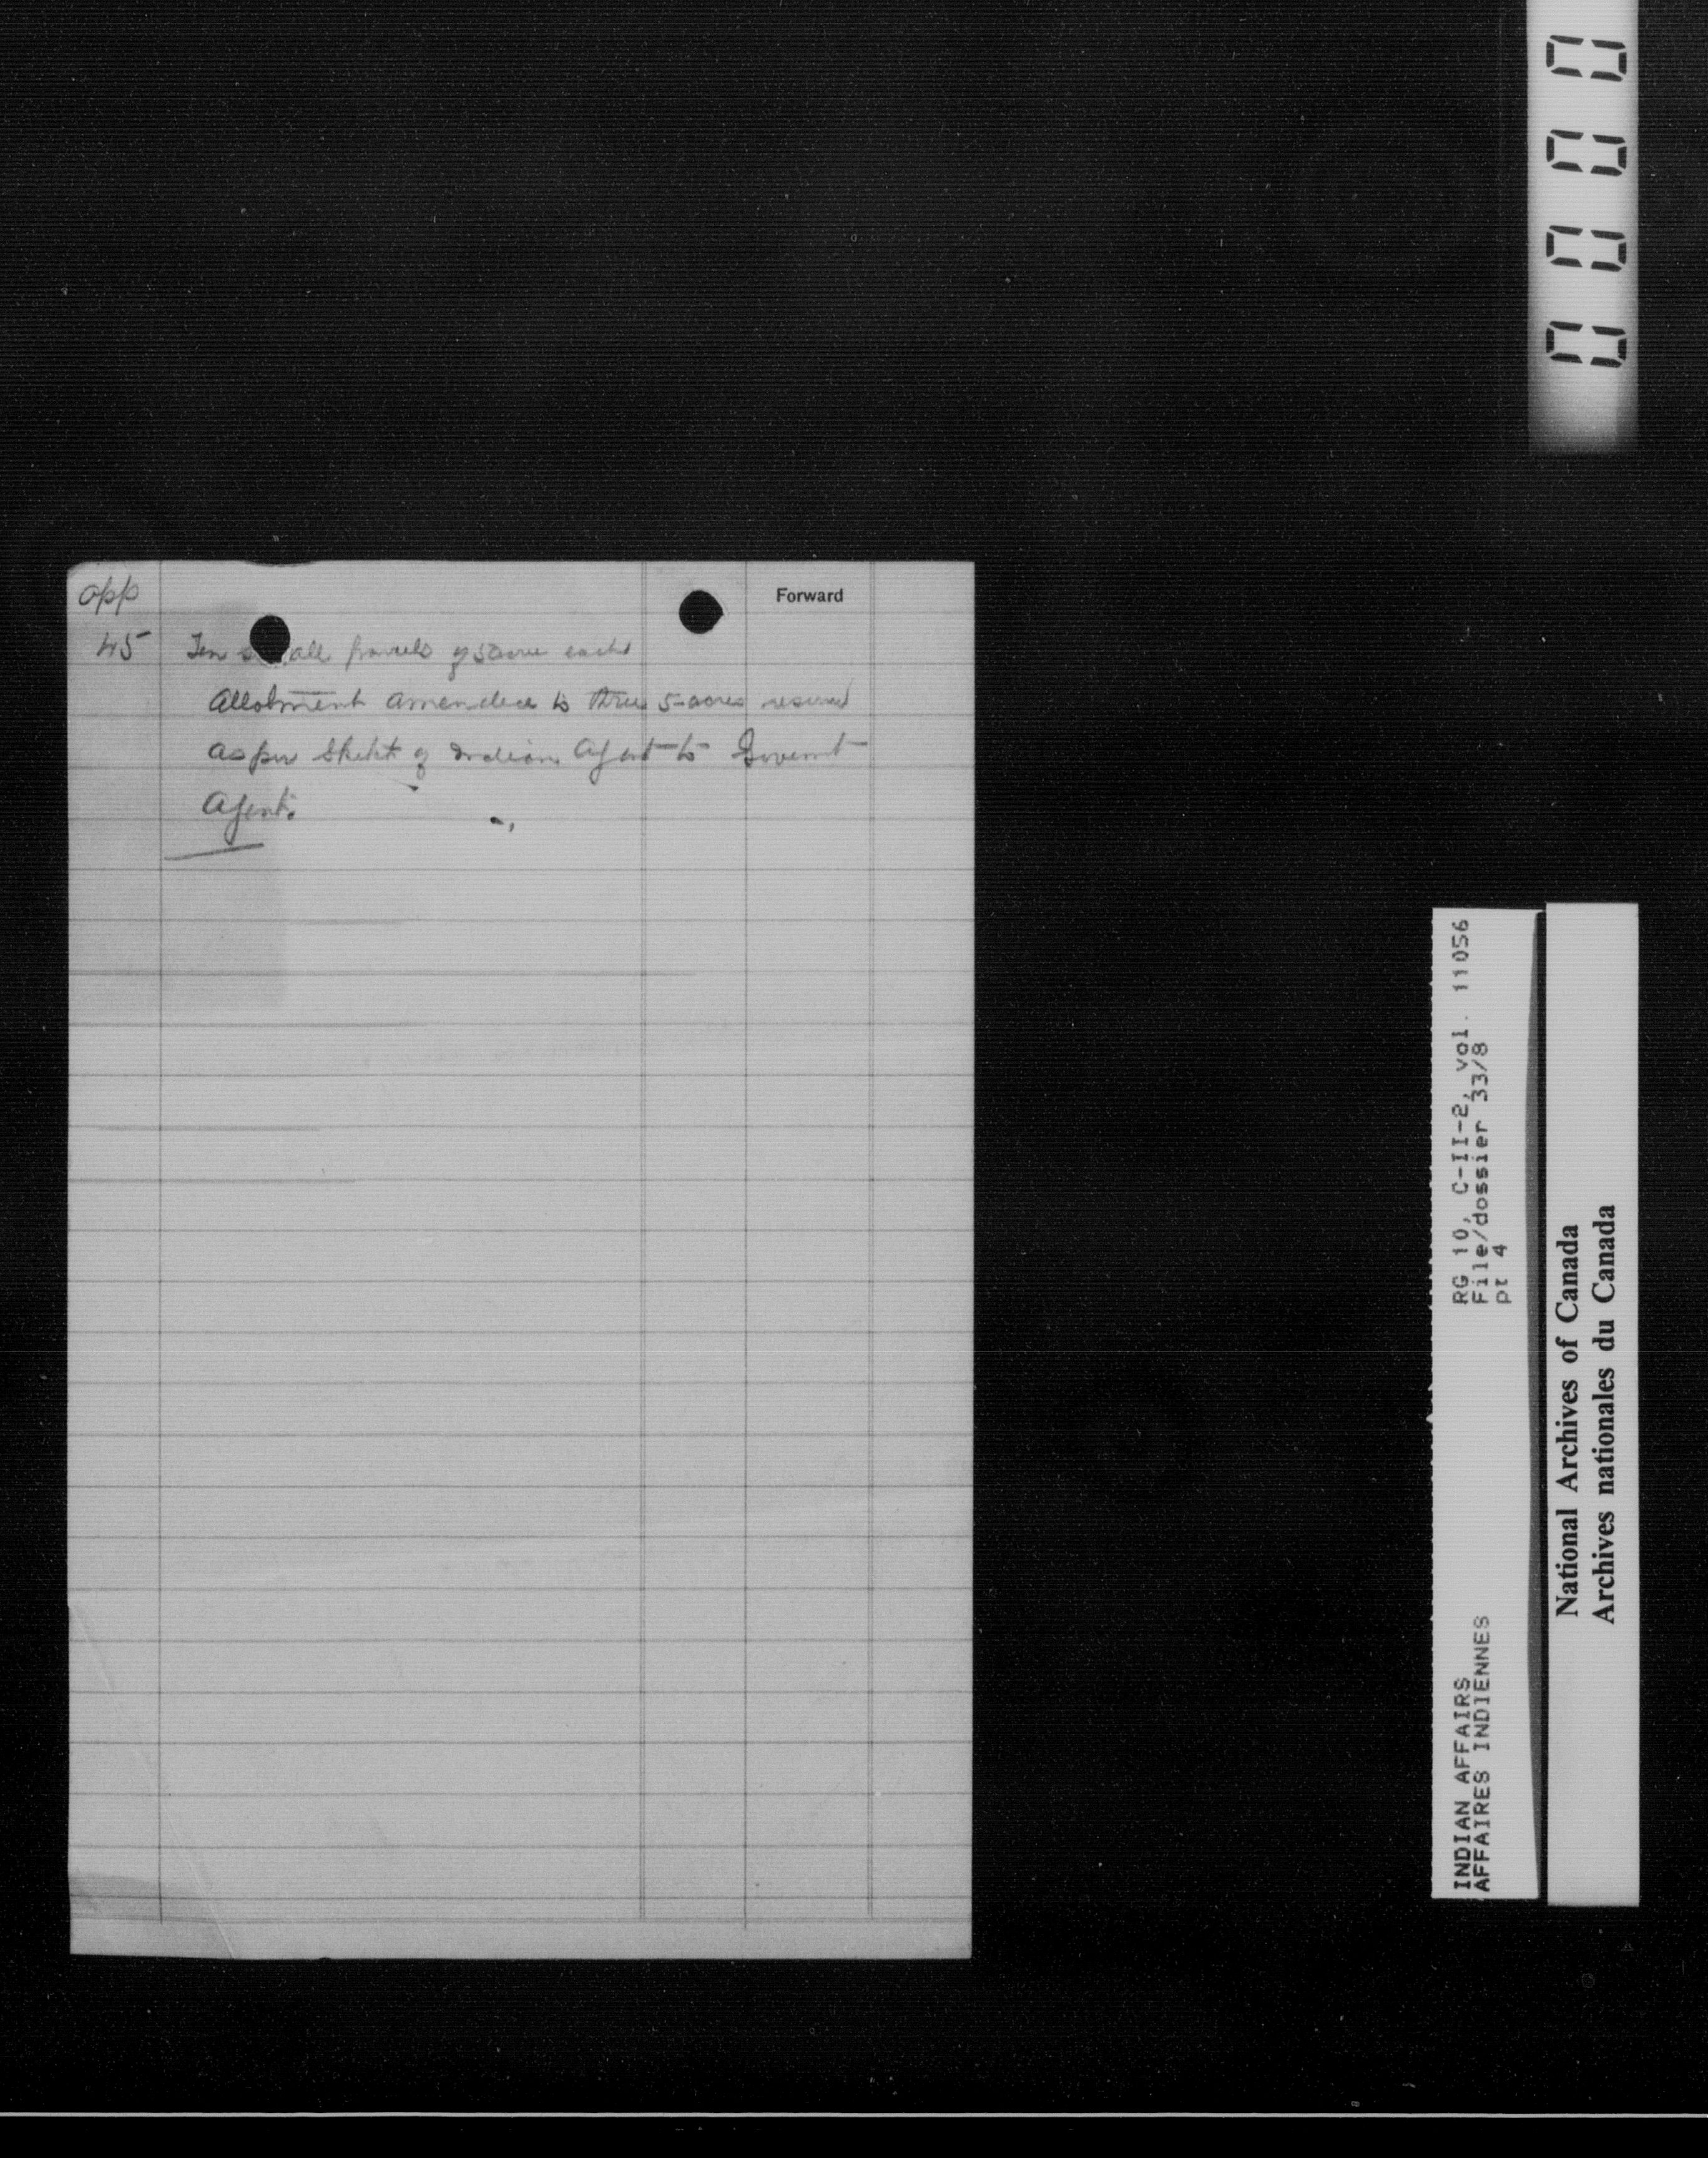 app
Forward
45 Ten small parcels of 5 acres each
Allotment amended to three 5-acres
as per sketch of Indian Agent to Governmt
Agent.
0000
RG 10, C-II-2, vol. 11056
File/dossier 33/8
pt 4
INDIAN AFFAIRS
AFFAIRES INDIENNES
National Archives of Canada
Archives nationales du Canada